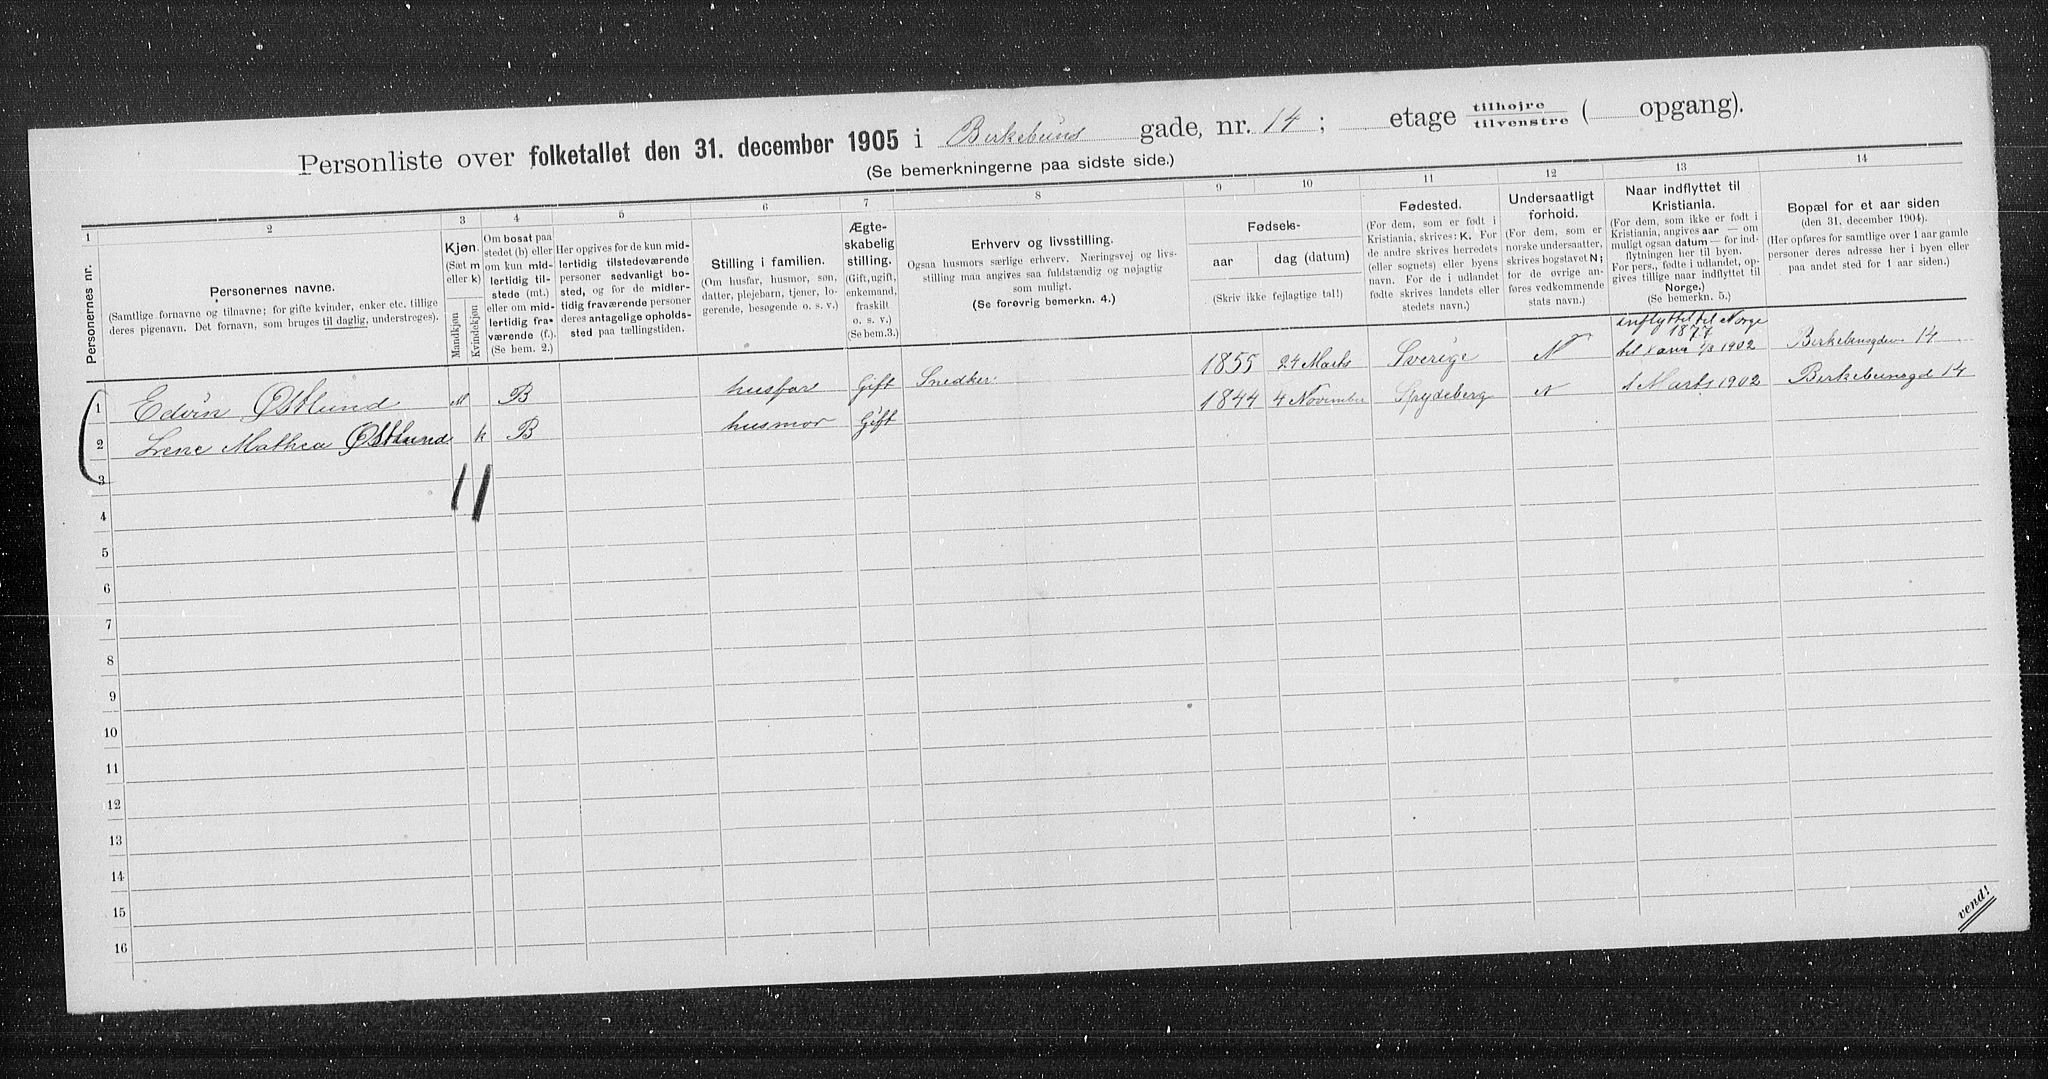 Personliste over folketallet den 31. december 1905 i Birkebeins gade, nr. 14; etage tilhøjre tilvenstre ( opgang).
(Se bemerkningerne paa sidste side.)
1 2 3 4 5 6 7 8 9 10 11 12 13 14
Personernes nr.
Personernes navne.
(Samtlige fornavne og tilnavne; for gifte kvinder, enker etc. tillige
deres pigenavn. Det fornavn, som bruges til daglig, understreges).
Kjøn.
(Sæt m
eller k)
Mandkjøn
Kvindekjøn
Om bosat paa
stedet (b) eller
om kun mid-
lertidig til-
stede (mt.)
eller om mid-
lertidig fra-
værende (f.).
(Se bem. 2.)
Her opgives for de kun mid-
lertidig tilstedeværende
personer sedvanligt bo-
sted, og for de midler-
tidig fraværende personer
deres antagelige opholds-
sted paa tællingstiden.
Stilling i familien.
(Om husfar, husmor, søn,
datter, plejebarn, tjener, lo-
gerende, besøgende o. s. v.)
Ægte-
skabelig
stilling.
(Gift, ugift,
enkemand,
fraskilt
o. s. v.)
(Se bem.3.)
Erhverv og livsstilling.
Ogsaa husmors særlige erhverv. Næringsvej og livs-
stilling maa angives saa fuldstændig og nøjagtig
som muligt.
(Se forøvrig bemerkn. 4.)
Fødsels-
aar
dag (datum)
(Skriv ikke fejlagtige tal!)
Fødested.
(For dem, som er født i
Kristiania, skrives: K. For
de andre skrives herredets
(eller sognets) eller byens
navn. For de i udlandet
fødte skrives landets eller
stedets navn.)
Undersaatligt
forhold.
(For dem, som er
norske undersaatter,
skrives bogstavet N;
for de øvrige an-
føres vedkommende
stats navn.)
Naar indflyttet til
Kristiania.
(For dem, som ikke er født i
Kristiania, angives aar — om
muligt ogsaa datum — for ind-
flytningen her til byen.
For pers., fødte i udlandet, op-
gives tillige naar indflyttet til
Norge.)
(Se bemerkn. 5.)
Bopæl for et aar siden
(den 31. december 1904).
(Her opføres for samtlige over 1 aar gamle
personer deres adresse her i byen eller
paa andet sted for 1 aar siden.)
inflyttet til Norge
1877
1 Edvin Østlund M B husfar Gift Snedker 1855 24 Marts Sverige N til 1/3 1902 Birkebeinsgden 14
2 Lene Mathea Østlund k B husmor Gift 1844 4 November Spydeberg N 1 Marts 1902 Birkebeinsgd 14
3
4
5
6
7
8
9
10
11
12
13
14
15
16
vend!